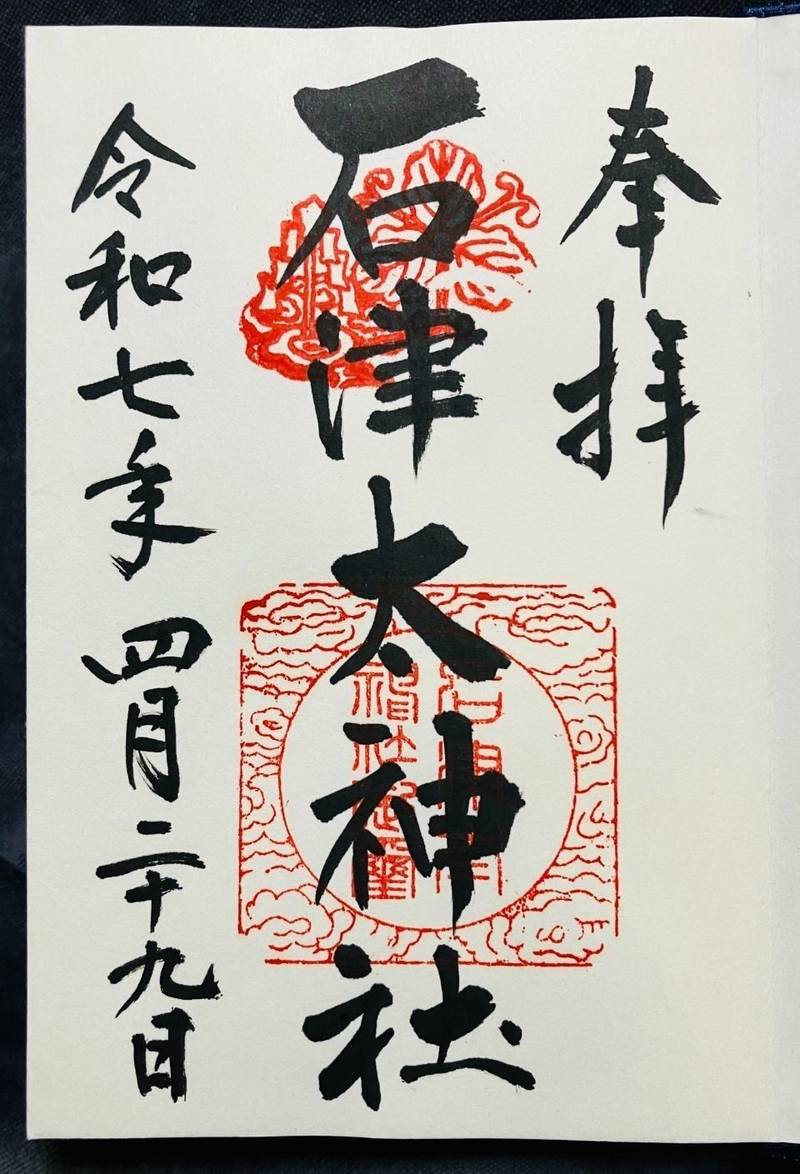 奉拝
石津太神社
令和七年四月二十九日